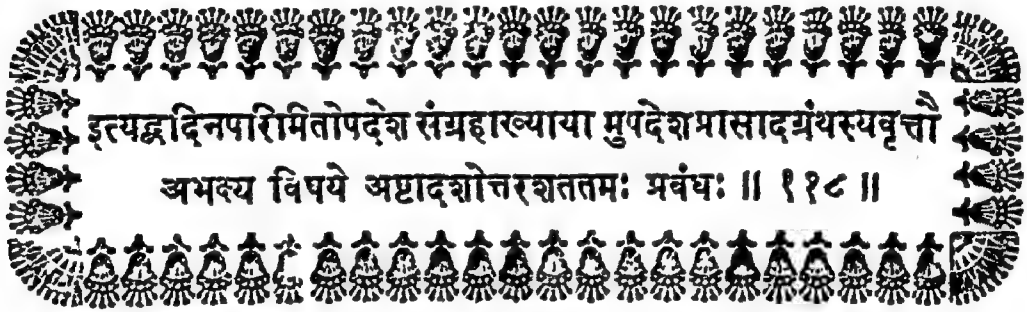 इत्यद्वदिनपारिमितोपदेश संग्रहाख्याया मुपदेशप्रासादग्रंथस्यवृत्तौ
अभक्ष्य विषये अष्टादशोत्तरशततमः प्रबंधः ॥ ११८ ॥